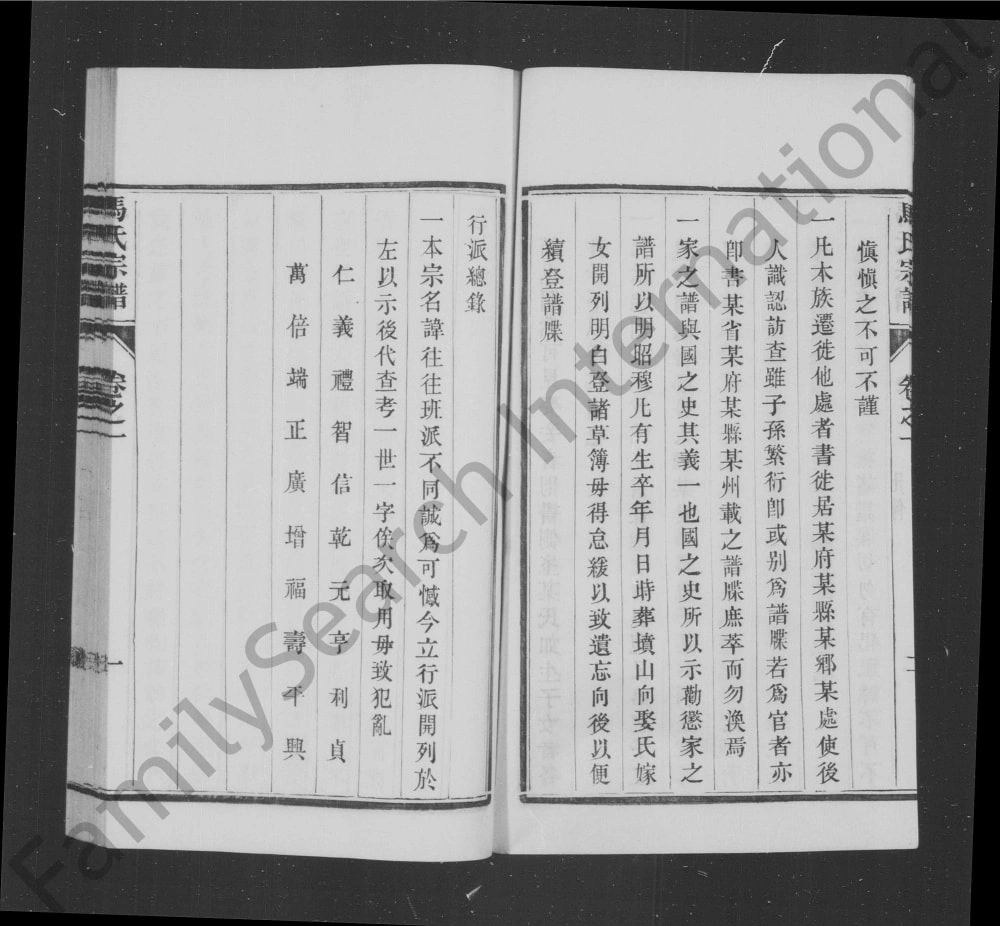 慎慎之不可不謹
一凡本族遷徙他處者書徙居某府某縣某鄉某處使後
人識認訪查雖子孫繁衍卽或別爲譜牒若爲官者亦
卽書某省某府某縣某州載之譜牒庶萃而勿渙焉
一家之譜與國之史其義一也國之史所以示勸懲家之
譜所以明昭穆凡有生卒年月日時葬墳山向娶氏嫁
女開列明白登諸草簿毋得怠緩以致遺忘向後以便
續登譜牒
行派總錄
一本宗名諱往往班派不同誠爲可憾今立行派開列於
左以示後代查考一世一字俟次取用毋致犯亂
仁義禮智信乾元亨利貞
萬倍端正廣增福壽平興
馬氏宗譜
卷之一
一
馬氏宗譜
卷之一
二
FamilySearch International